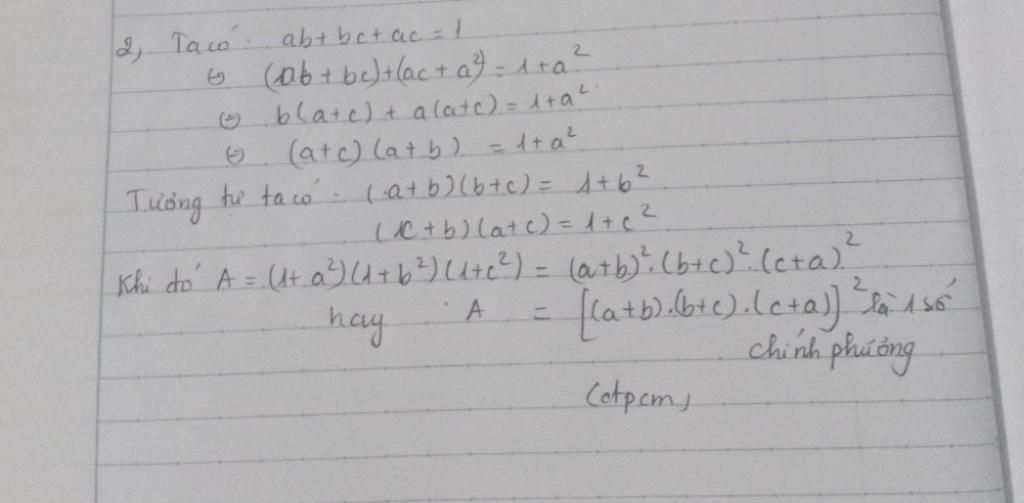 2, Ta có: ab+bc+ac = 1
⇔ (ab + bc)+(ac + a²) = 1+a²
⇔ b(a+c) + a(a+c) = 1+a²
⇔ (a+c)(a+b) = 1+a²
Tương tự ta có: (a+b)(b+c) = 1+b²
(c+b)(a+c) = 1+c²
Khi đó A = (1+a²)(1+b²)(1+c²) = (a+b)².(b+c)².(c+a)²
hay A = [(a+b).(b+c).(c+a)]² là 1 số
chính phương
(đpcm)